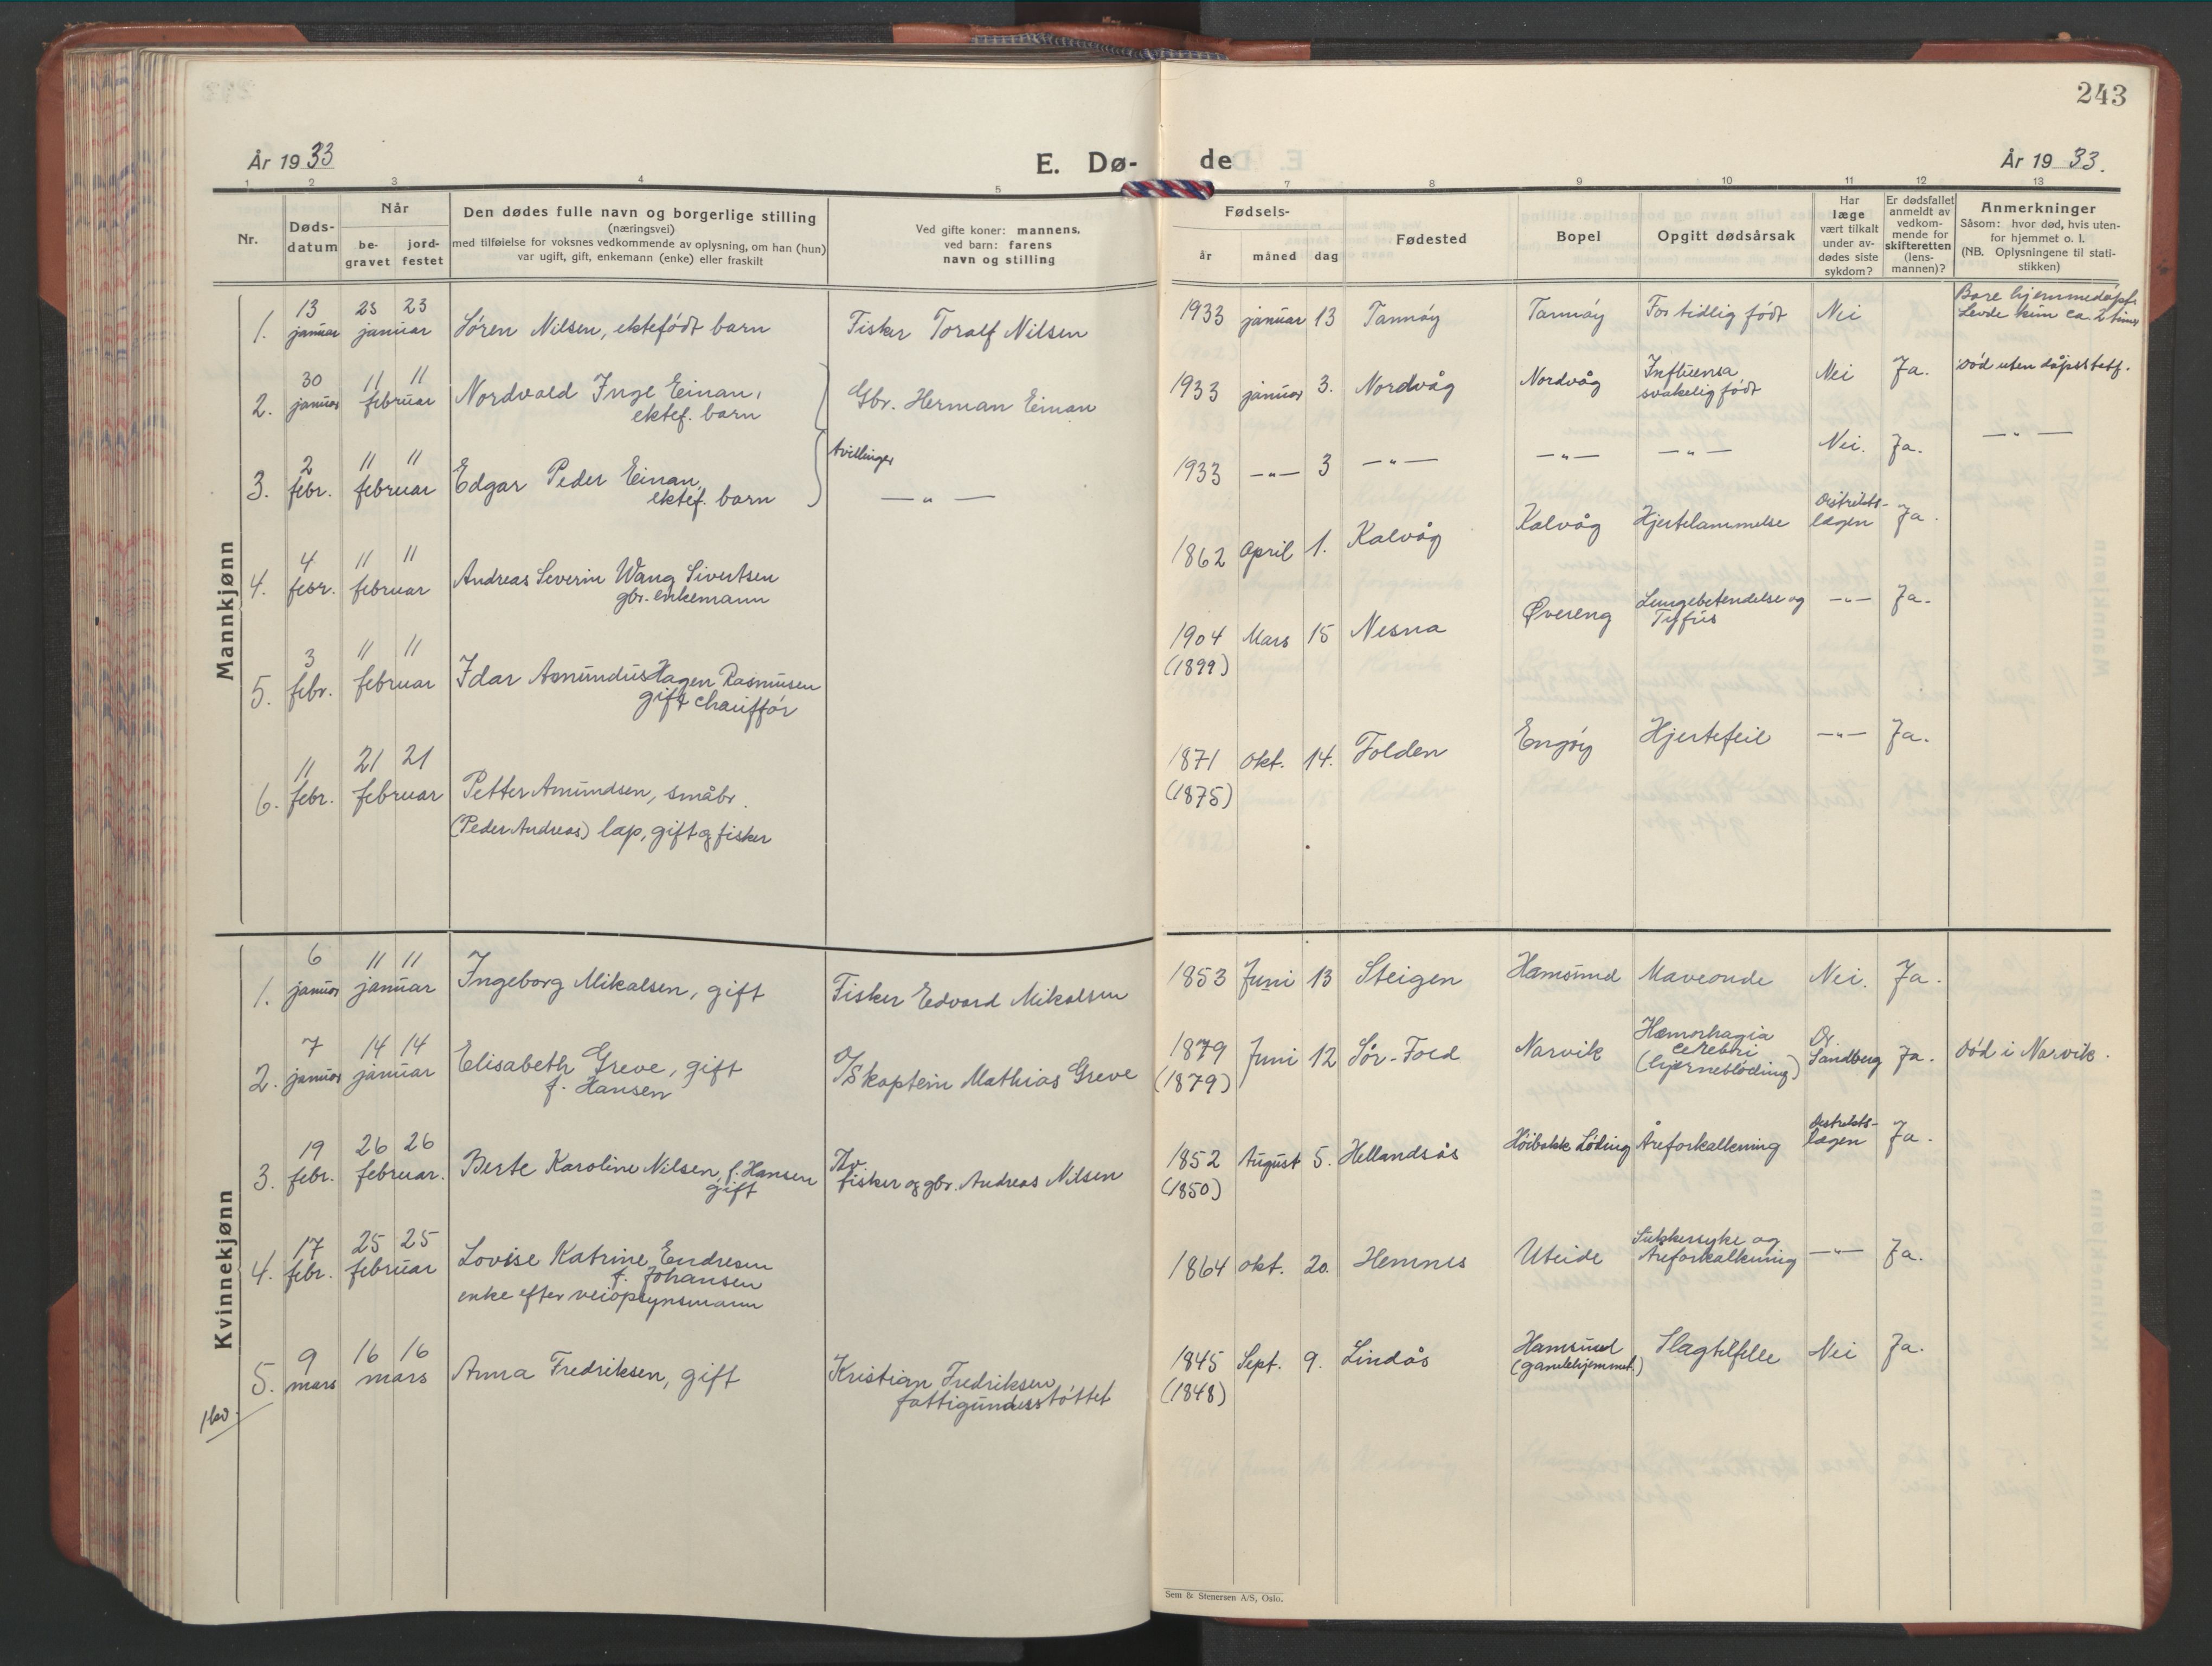 243
År 1933
E. Dø-
de
År 1933.
1 2 3 4 5
7 8 9 10 11 12 13
Nr.
Døds-
datum
Når
be-
gravet
jord-
festet
Den dødes fulle navn og borgerlige stilling
(næringsvei)
med tilføielse for voksnes vedkommende av oplysning, om han (hun)
var ugift, gift, enkemann (enke) eller fraskilt
Ved gifte koner: mannens,
ved barn: farens
navn og stilling
Fødsels-
år måned dag
Fødested
Bopel
Opgitt dødsårsak
Har
læge
vært tilkalt
under av-
dødes siste
sykdom?
Er dødsfallet
anmeldt av
vedkom-
mende for
skifteretten
(lens-
mannen)?
Anmerkninger
Såsom: hvor død, hvis uten-
for hjemmet o. l.
(NB. Oplysningene til stati-
stikken)
Mannkjønn
13 23 23
1. januar januar Søren Nilsen, ektefødt barn Fisker Toralf Nilsen
1933 januar 13 Tannøy Tannøy For tidlig født Nei
Bare hjemmedøpt.
Levde kun ca. 2 timer
30 11 11
2. januar februar Nordvald Inge Einan,
ektef. barn
Gbr. Herman Einan
1933 januar 3. Nordvåg Nordvåg Influensa
svakelig født
Nei Ja. Død uten dåpsattest.
tvillinger
2 11 11
3. febr. februar Edgar Peder Einan,
ektef. barn
— " —
1933 — " — 3 — " — — " — — " — Nei. Ja. — " —
4 11 11
4. febr. februar Andreas Severin Wang Sivertsen
gbr. enkemann
1862 April 1. Kalvåg Kalvåg Hjertelammelse Distrikts-
lægen Ja.
3 11 11
5. febr. februar Idar Amundus Hagen Rasmusen
gift chauffør
1904 Mars 15 Nesna Øvereng Lungebetendelse og
Tyfus
— " — Ja.
(1899)
11 21 21
6. febr. februar Petter Amundsen, småbr.
(Peder Andreas) lap, gift og fisker
1871 Okt. 14. Folden Engøy Hjertefeil — " — Ja.
(1875)
Kvinnekjønn
6 11 11
1. januar januar Ingeborg Mikalsen, gift Fisker Edvard Mikalsen
1853 Juni 13 Steigen Hamsund Maveonde Nei. Ja.
7 14 14
2. januar januar Elisabeth Greve, gift
f. Hansen
D/Skaptein Mathias Greve
1879 Juni 12 Sør-Fold Narvik Hæmorhagia
cerebri
(hjerneblødning)
Dr.
Sandberg Ja. Død i Narvik.
(1879)
19 26 26
3. febr. februar. Berte Karoline Nilsen, f. Hansen
gift
fisker og gbr. Andreas Nilsen
1852 August 5. Hellandsås Høibakk Løding Åreforkalkning Distrikts-
lægen Ja.
(1850)
17 25 25
4. febr. februar Lovise Katrine Endresen
f. Johansen
enke efter veiopsynsmann
1864 Okt. 20. Hemnes Uteide Sukkersyke og
Åreforkalkning
— " — Ja.
9 16 16
5. mars mars Anna Fredriksen, gift Kristian Fredriksen,
fattigunderstøttet
1845 Sept. 9. Lindås Hamsund
(gamlehjemmet.)
Slagtilfelle Nei Ja.
(1848)
Sem & Stenersen A/S, Oslo.